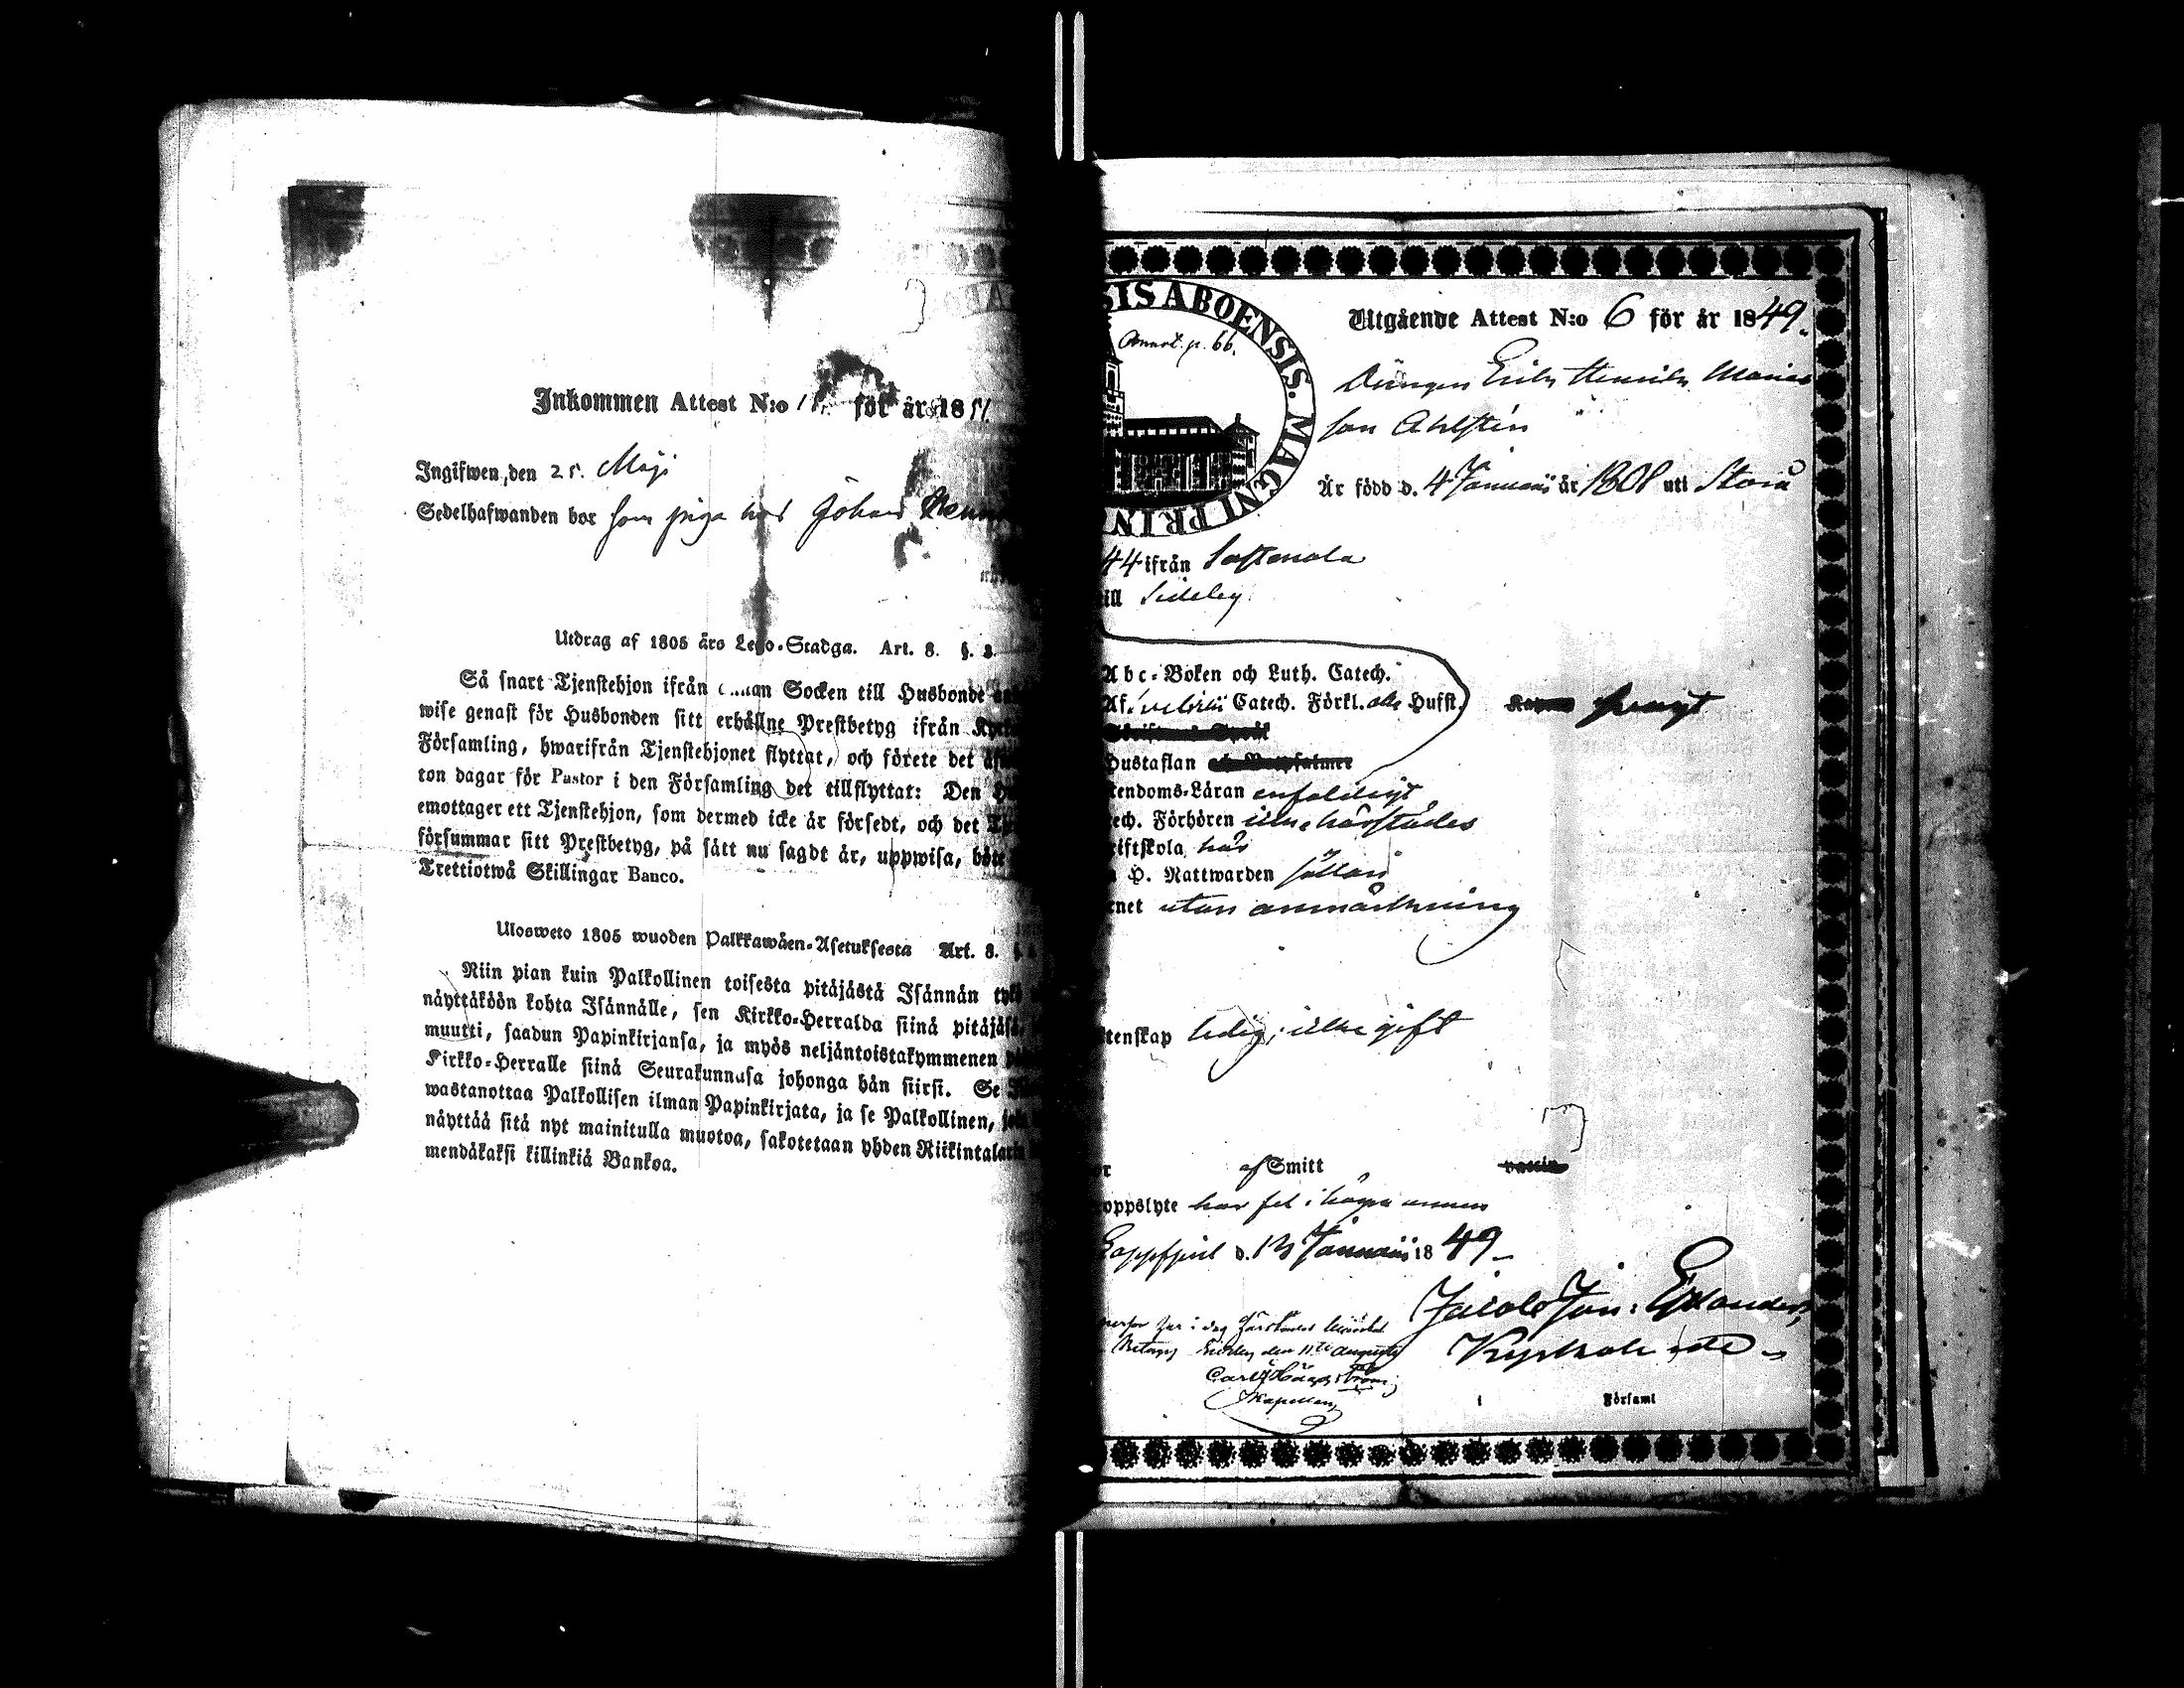 Inkommen Attest N:o för år 1851
Ingifwen, den 25. Maji
Sedelhafwanden bor som piga hos Johan
Utdrag af 1805 års Lego-Stadga. Art. 8. §. 3.
Så snart Tjenstehjon ifrån annan Socken till Husbonde
wise genast för Husbonden sitt erhållne Prestbetyg ifrån
Församling, hwarifrån Tjenstehjonet flyttat, och förete det
ton dagar för Pastor i den Församling det tillflyttat: Den
emottager ett Tjenstehjon, som dermed icke är försedt, och det
försummar sitt Prestbetyg, på sätt nu sagdt är, uppwisa, böte
Trettiotwå Skillingar Banco.
Ulosweto 1805 wuoden Palkkawäen-Asetuksesta Art. 8.
Niin pian kuin Palkollinen toisesta pitäjästä Isännän tykö
näyttäköön kohta Isännälle, sen Kirkko-Herralda siinä pitäjäsä,
muutti, saadun Papinkirjansa, ja myös neljäntoistakymmenen
Kirkko-Herralle siinä Seurakunnasa johonga hän siirsi. Se
wastanottaa Palkollisen ilman Papinkirjata, ja se Palkollinen,
näyttää sitä nyt mainitulla muotoa, sakotetaan yhden Riikintalarin
mendäkaksi killinkiä Bankoa.
SIS ABOENSIS. MAGNI PRIN
Annot. p. 66.
Utgående Attest N:o 6 för år 1849.
Drängen Erik Henrik Marias
son Ahlstén
Är född d. 4 Januarii år 1808 uti Storå
44 ifrån Lastmola
till Sideby
Abc-Boken och Luth. Catech.
Af Catech. Förkl. Hufst. svagt
Hustaflan
tendoms-Läran enfaldigt
ech. Förhören icke härstädes
riftskola här
H. Nattwarden sällan
rnet utan anmärkning
tenskap ledig, icke gift
af Smitt
oppslyte har fel i högra armen
Lappfjerd d. 13 Januarii 1849
i dag härstädes
Betygg Sideby den 11te Augusti
Carl Häggström
Kapellan
Jacob Jon:
Kyrkoh
i Församl